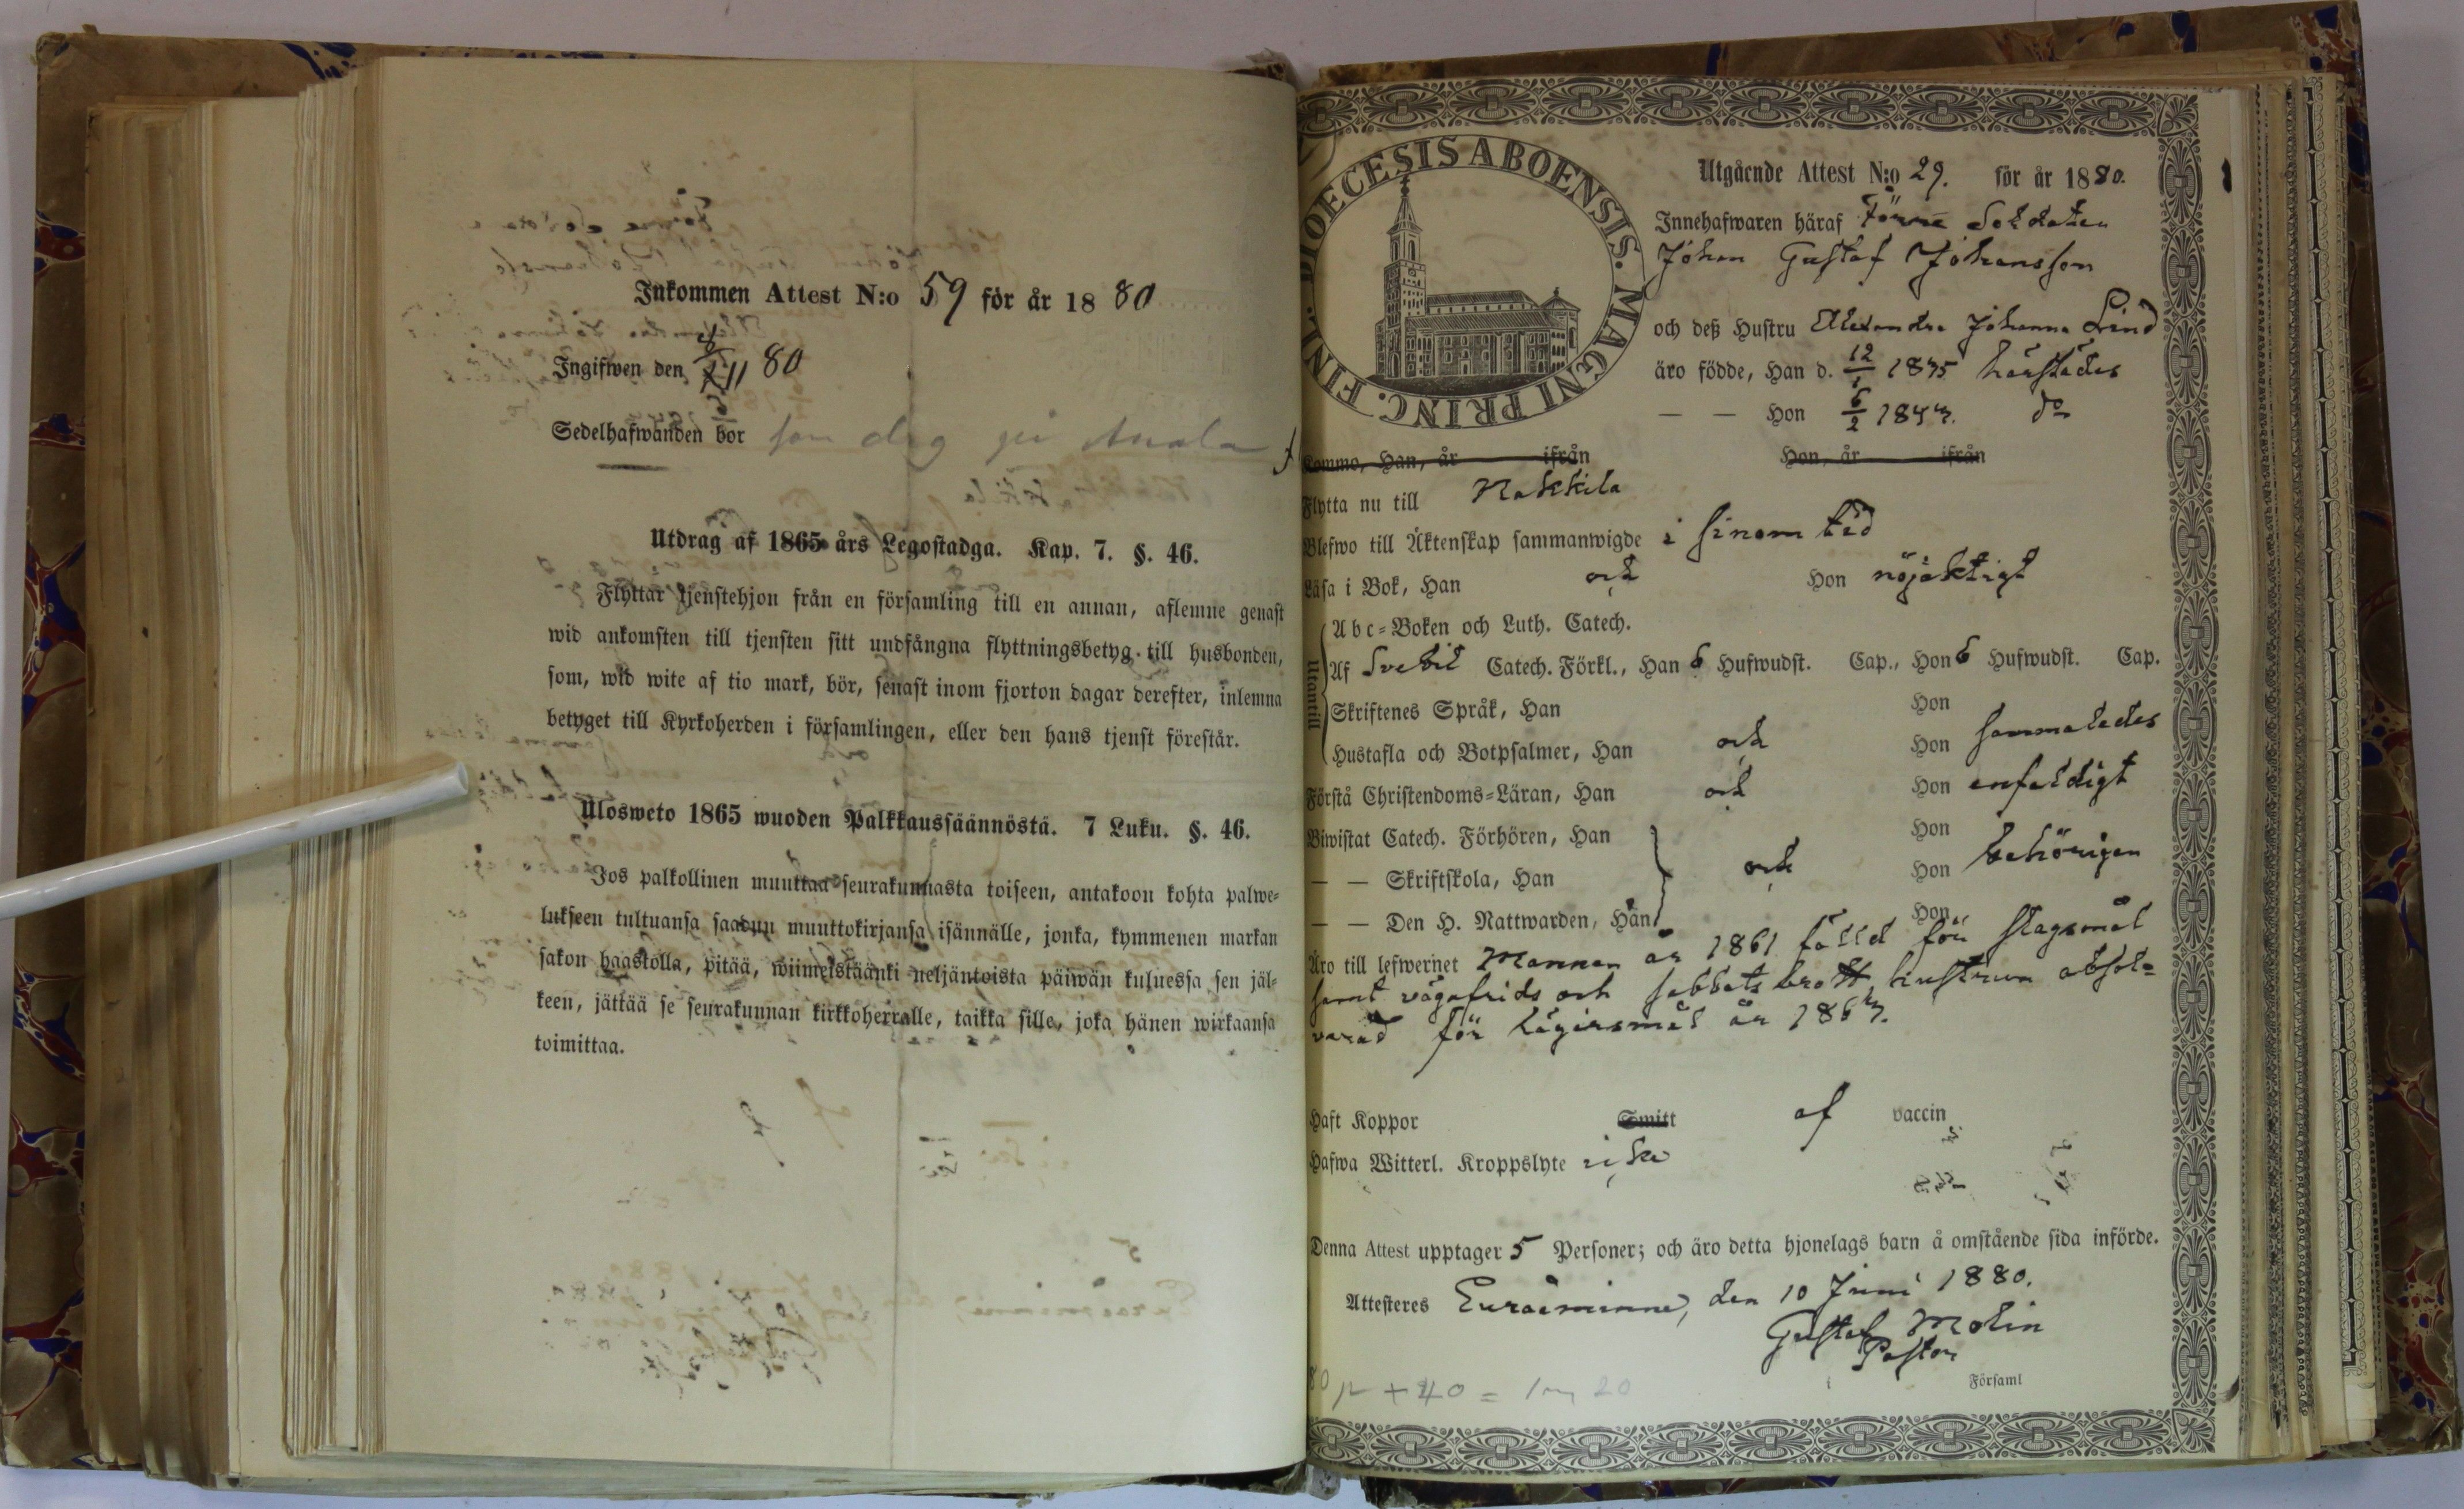 Inkommen Attest N:o 59 för år 1880
Ingifwen den 11 80
Sedelhafwanden bor som drg på Anola
Utdrag af 1865 års Legostadga. Kap. 7. §. 46.
Flyttar tjenstehjon från en församling till en annan, aflemne genast
wid ankomsten till tjensten sitt undfångna flyttningsbetyg till husbonden,
som, wid wite af tio mark, bör, senast inom fjorton dagar derefter, inlemna
betyget till Kyrkoherden i församlingen, eller den hans tjenst förestår.
Ulosweto 1865 wuoden Palkkaussäännöstä. 7 Luku. §. 46.
Jos palkollinen muuttaa seurakunnasta toiseen, antakoon kohta palwe-
lukseen tultuansa saadun muuttokirjansa isännälle, jonka, kymmenen markan
sakon haastolla, pitää, wiimeistäänki neljäntoista päiwän kuluessa sen jäl-
keen, jättää se seurakunnan kirkkoherralle, taikka sille, joka hänen wirkaansa
toimittaa.
DIOECESIS ABOENSIS. MAGNI PRINC. FINL.
Utgående Attest N:o 29. för år 1880.
Innehafwaren häraf Förre Soldaten
Johan Gustaf Johansson
och deß Hustru Alexandra Johanna Lind
äro födde, Han d. 12/1 1835 härstädes
— — Hon 6/2 1843. do
Kommo, Han, år ifrån Hon, år ifrån
Flytta nu till Nakkila
Blefwo till Äktenskap sammanwigde i sinom tid
Läsa i Bok, Han och Hon nöjaktigt
Utantill
Abc-Boken och Luth. Catech.
Af Svebil Catech. Förkl., Han 6 Hufwudst. Cap., Hon 6 Hufwudst. Cap.
Skriftenes Språk, Han Hon
Hustafla och Botpsalmer, Han och Hon sammaledes
Förstå Christendoms-Läran, Han och Hon enfaldigt
Biwistat Catech. Förhören, Han Hon
— — Skriftskola, Han och Hon behörigen
— — Den H. Nattwarden, Han Hon
Äro till lefwernet Mannen år 1861 fälld för slagsmål
samt vägafrids och sabbatsbrott, hustrun absol-
verad för lägersmål år 1863.
Haft Koppor Smitt af vaccin
Hafwa Witterl. Kroppslyte icke
Denna Attest upptager 5 Personer; och äro detta hjonelags barn å omstående sida införde.
Attesteres Euraåminne, den 10 Juni 1880.
Gustaf Molin
Pastor
Församl
80 p + 40 = 1 m 20